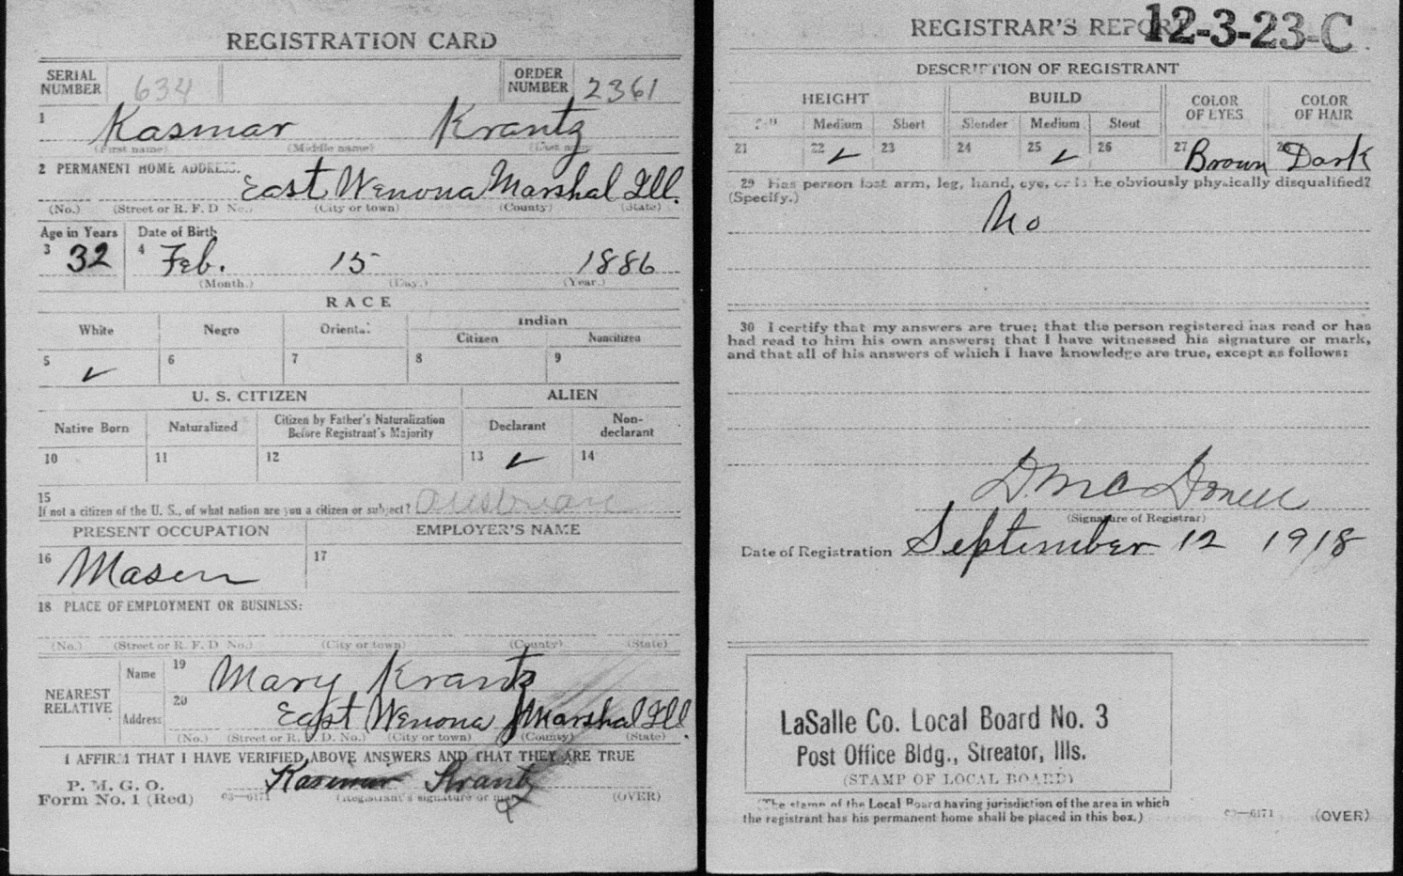 REGISTRATION CARD
SERIAL NUMBER 634 ORDER NUMBER 2361
1 Kasmar Krantz
(First name) (Middle name) (Last name)
2 PERMANENT HOME ADDRESS:
East Wenona Marshal Ill.
(No.) (Street or R. F. D No.) (City or town) (County) (State)
Age in Years Date of Birth
3 32 4 Feb. 15 1886
(Month.) (Day.) (Year.)
RACE
White Negro Oriental Indian
Citizen Noncitizen
5 ✓ 6 7 8 9
U. S. CITIZEN ALIEN
Native Born Naturalized Citizen by Father's Naturalization Before Registrant's Majority Declarant Non-declarant
10 11 12 13 ✓ 14
15
If not a citizen of the U. S., of what nation are you a citizen or subject? Austrian
PRESENT OCCUPATION EMPLOYER'S NAME
16 Masen 17
18 PLACE OF EMPLOYMENT OR BUSINESS:
(No.) (Street or R. F. D No.) (City or town) (County) (State)
NEAREST RELATIVE
Name 19 Mary Krantz
Address 20 East Wenona Marshal Ill
(No.) (Street or R. F. D. No.) (City or town) (County) (State)
I AFFIRM THAT I HAVE VERIFIED ABOVE ANSWERS AND THAT THEY ARE TRUE
P. M. G. O.
Form No. 1 (Red) 03—6171 Kasmar Krantz
(Registrant's signature or mark) (OVER)
REGISTRAR'S REPORT 12-3-23-C
DESCRIPTION OF REGISTRANT
HEIGHT BUILD COLOR OF EYES COLOR OF HAIR
Tall Medium Short Slender Medium Stout
21 22 ✓ 23 24 25 ✓ 26 27 Brown 28 Dark
29 Has person lost arm, leg, hand, eye, or is he obviously physically disqualified?
(Specify.)
No
30 I certify that my answers are true; that the person registered has read or has
had read to him his own answers; that I have witnessed his signature or mark,
and that all of his answers of which I have knowledge are true, except as follows:
D. McDonell
(Signature of Registrar)
Date of Registration September 12 1918
LaSalle Co. Local Board No. 3
Post Office Bldg., Streator, Ills.
(STAMP OF LOCAL BOARD)
(The stamp of the Local Board having jurisdiction of the area in which
the registrant has his permanent home shall be placed in this box.)
03—6171 (OVER)